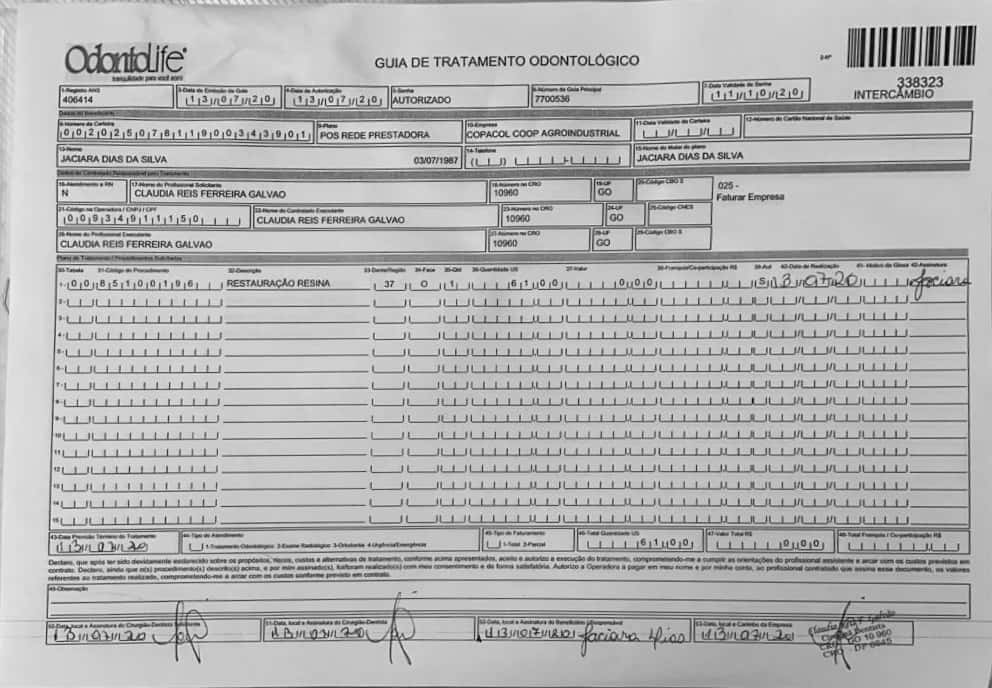 OdontoLife
tranquilidade para você sorrir
GUIA DE TRATAMENTO ODONTOLÓGICO
338323
INTERCÂMBIO
1-Registro ANS 3-Data de Emissão da Guia 4-Data de Autorização 5-Senha 6-Número da Guia Principal 7-Data Validade da Senha
406414 13/07/20 13/07/20 AUTORIZADO 7700536 11/10/20
Dados do Beneficiário
8-Número da Carteira 9-Plano 10-Empresa 11-Data Validade da Carteira 12-Número do Cartão Nacional de Saúde
00202507811900034 3901 POS REDE PRESTADORA COPACOL COOP AGROINDUSTRIAL
13-Nome 14-Telefone 15-Nome do titular do plano
JACIARA DIAS DA SILVA 03/07/1987 JACIARA DIAS DA SILVA
Dados do Contratado Responsável pelo Tratamento
16-Atendimento a RN 17-Nome do Profissional Solicitante 18-Número no CRO 19-UF 20-Código CBO S 025 -
N CLAUDIA REIS FERREIRA GALVAO 10960 GO Faturar Empresa
21-Código na Operadora / CNPJ / CPF 22-Nome do Contratado Executante 23-Número no CRO 24-UF 25-Código CNES
00934911150 CLAUDIA REIS FERREIRA GALVAO 10960 GO
26-Nome do Profissional Executante 27-Número no CRO 28-UF 29-Código CBO S
CLAUDIA REIS FERREIRA GALVAO 10960 GO
Plano de Tratamento / Procedimentos Solicitados
30-Tabela 31-Código do Procedimento 32-Descrição 33-Dente/Região 34-Face 35-Qtd 36-Quantidade US 37-Valor 38-Franquia/Co-participação R$ 39-Aut 40-Data de Realização 41-Motivo da Glosa 42-Assinatura
1- 00 85100196 RESTAURAÇÃO RESINA 37 O 1 61 00 0 00 S 13 07 20 Jaciara
2-
3-
4-
5-
6-
7-
8-
9-
10
11
12
13
14
15
43-Data Previsão Término do Tratamento 44-Tipo de Atendimento 45-Tipo de Faturamento 46-Total Quantidade US 47-Valor Total R$ 48-Total Franquia / Co-participação R$
13/07/20 1-Tratamento Odontológico 2-Exame Radiológico 3-Ortodontia 4-Urgência/Emergência 1-Total 2-Parcial 61 00 0 00
Declaro, que após ter sido devidamente esclarecido sobre os propósitos, riscos, custos e alternativas de tratamento, conforme acima apresentados, aceito e autorizo a execução do tratamento, comprometendo-me a cumprir as orientações do profissional assistente e arcar com os custos previstos em
contrato. Declaro, ainda que o(s) procedimento(s) descrito(s) acima, e por mim assinado(s), foi/foram realizado(s) com meu consentimento e de forma satisfatória. Autorizo a Operadora à pagar em meu nome e por minha conta, ao profissional contratado que assina esse documento, os valores
referentes ao tratamento realizado, comprometendo-me a arcar com os custos conforme previsto em contrato.
49-Observação
50-Data, local e Assinatura do Cirurgião-Dentista Solicitante 51-Data, local e Assinatura do Cirurgião-Dentista 52-Data, local e Assinatura do Beneficiário / Responsável 53-Data, local e Carimbo da Empresa
13/07/20 13/07/20 13/07/20 Jaciara Dias 13/07/20
CRO GO 10.960